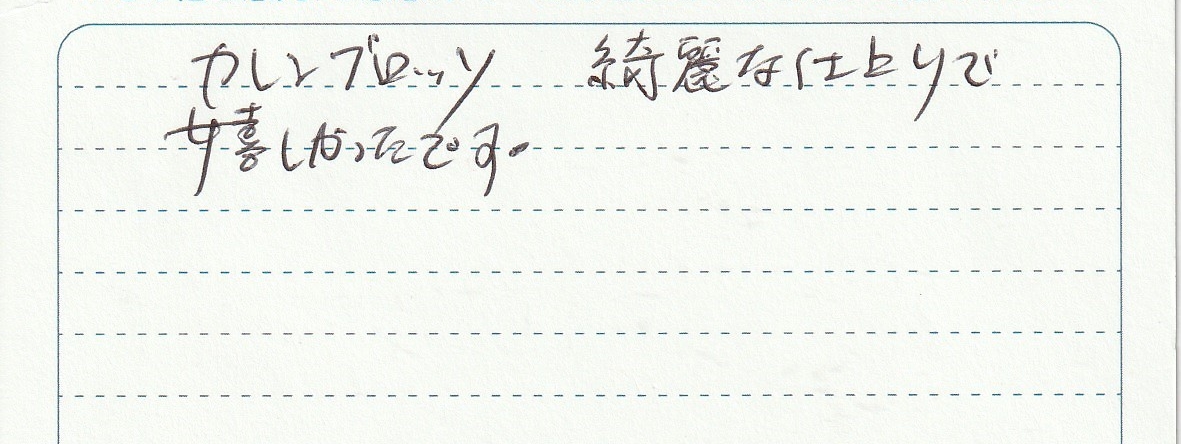 カレンブロッソ 綺麗な仕上りで
嬉しかったです。